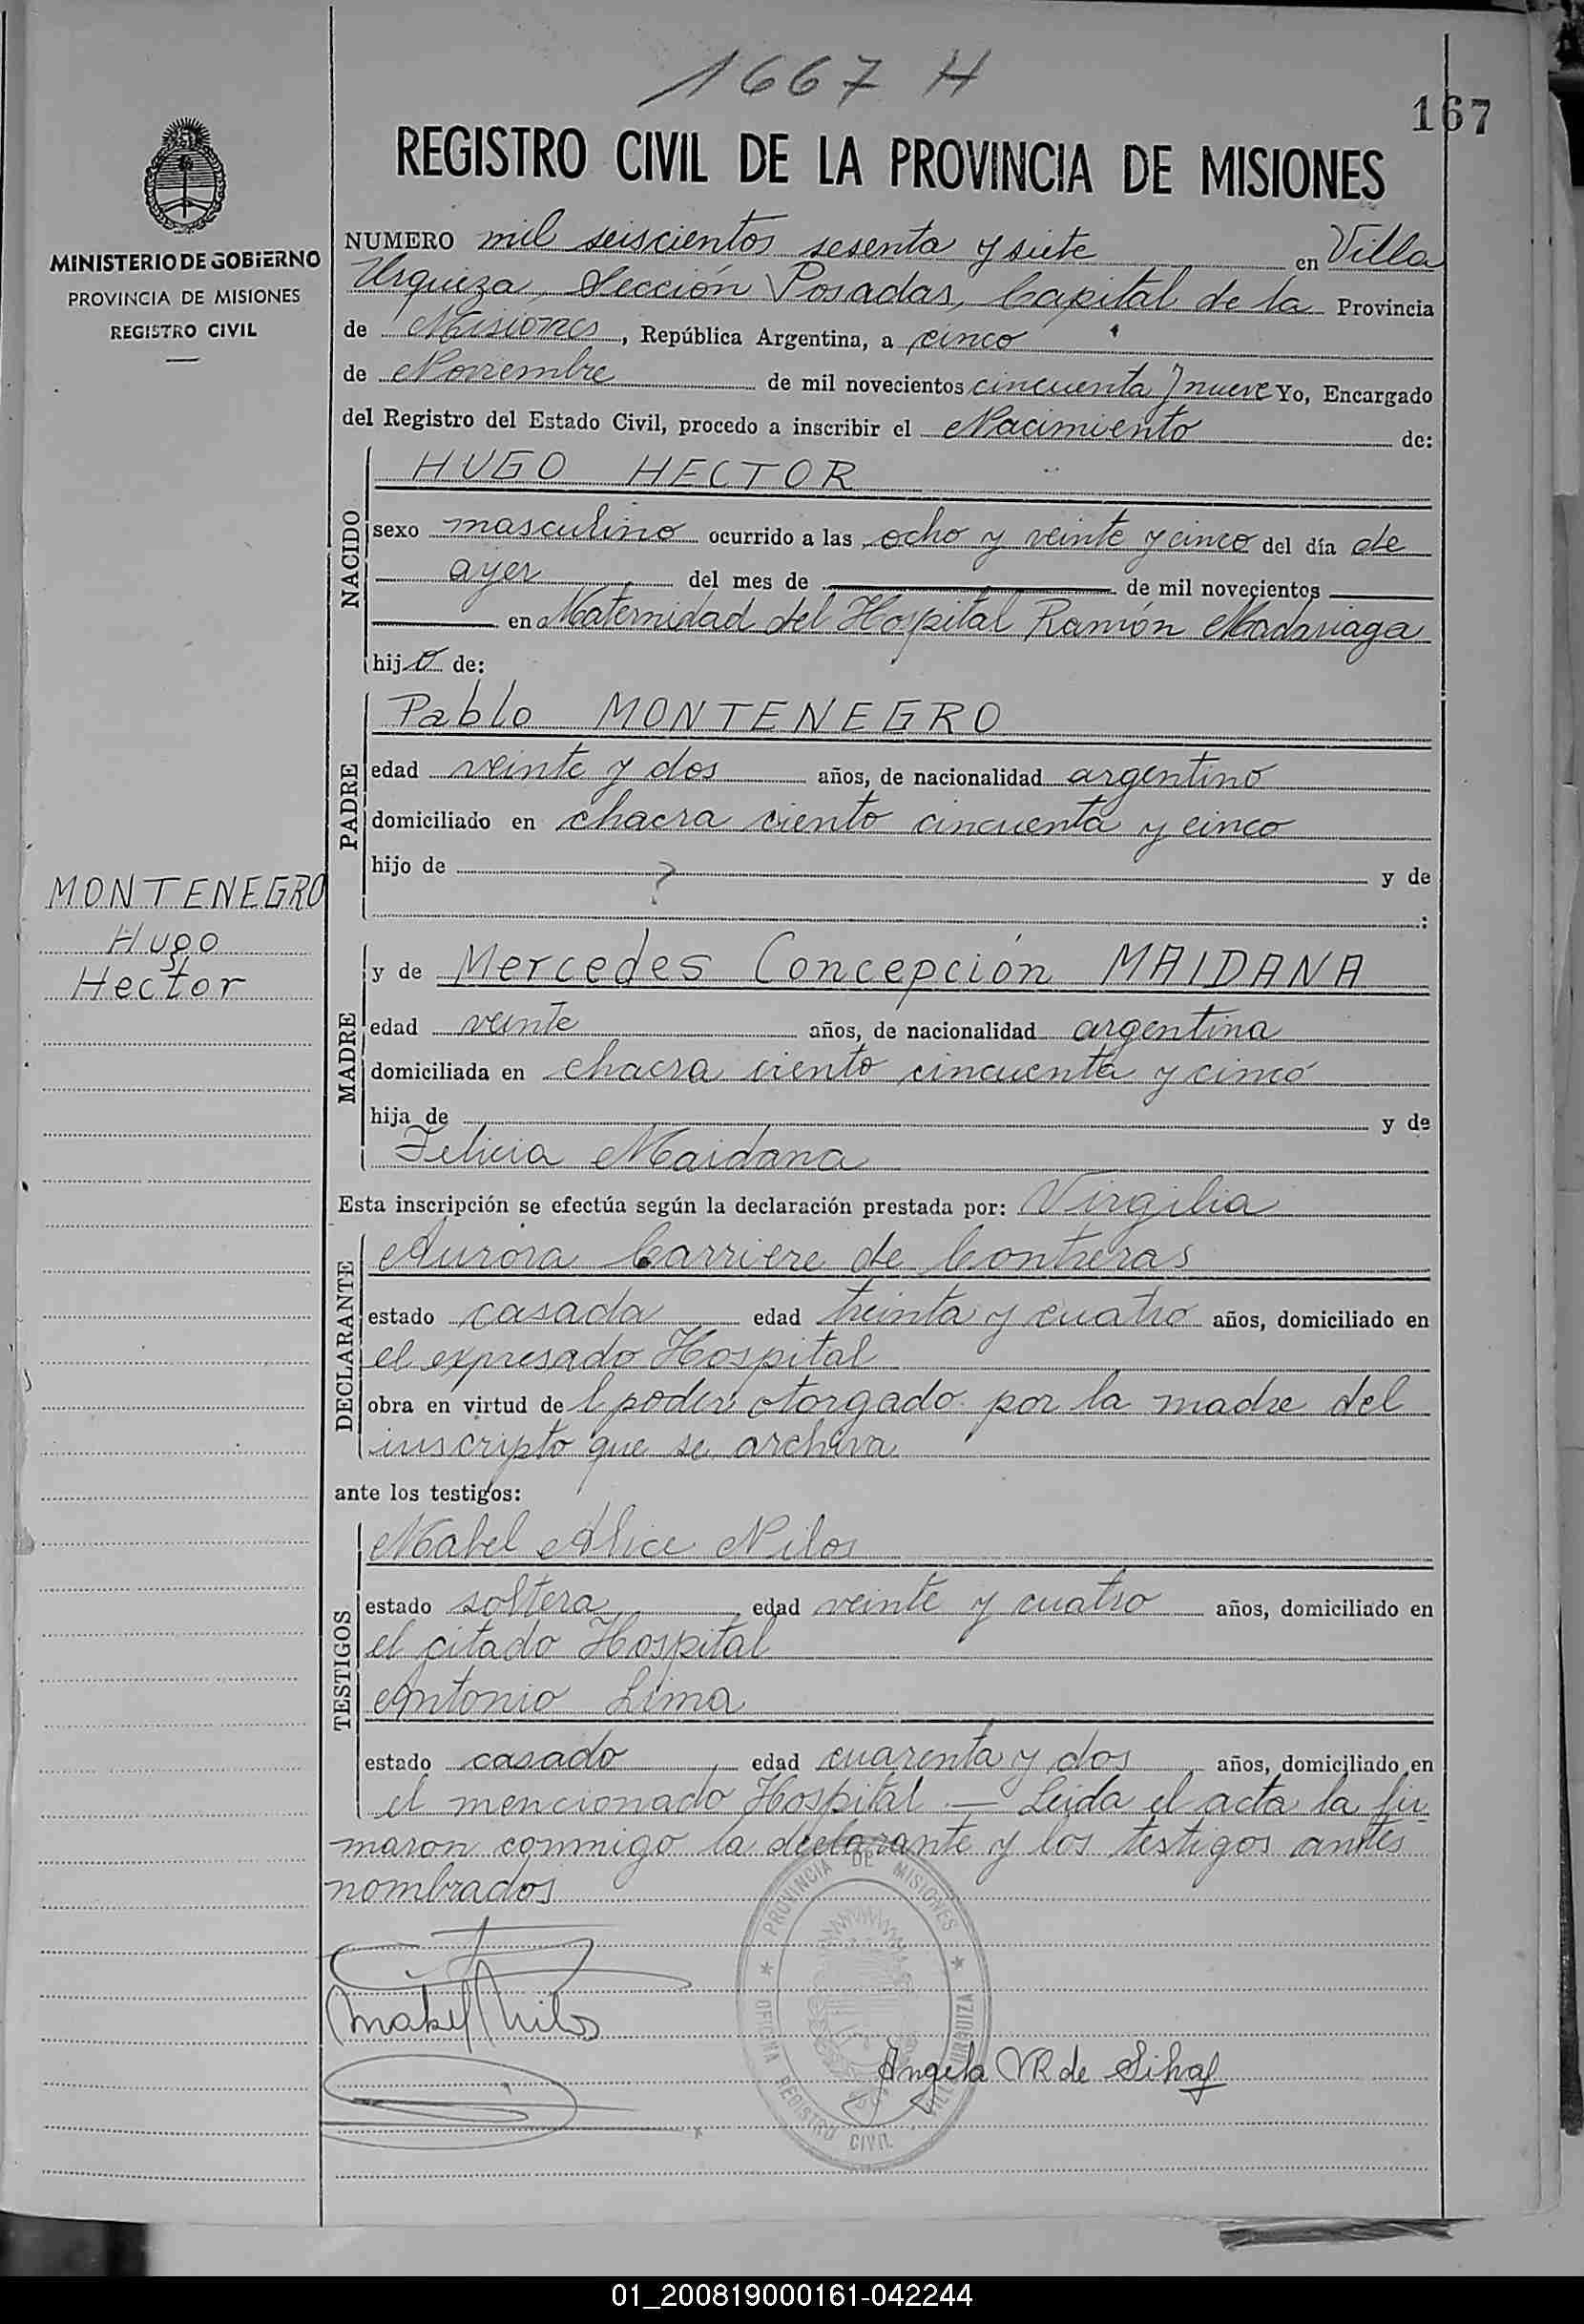 1667 H
167
REGISTRO CIVIL DE LA PROVINCIA DE MISIONES
MINISTERIO DE GOBIERNO
PROVINCIA DE MISIONES
REGISTRO CIVIL
NUMERO mil seiscientos sesenta y siete en Villa
Urquiza, Sección Posadas, Capital de la Provincia
de Misiones, República Argentina, a cinco
de Noviembre de mil novecientos cincuenta y nueve Yo, Encargado
del Registro del Estado Civil, procedo a inscribir el Nacimiento de:
NACIDO
HUGO HECTOR
sexo masculino ocurrido a las ocho y veinte y cinco del día de
ayer del mes de de mil novecientos
en Maternidad del Hospital Ramón Madariaga
hijo de:
PADRE
Pablo MONTENEGRO
edad veinte y dos años, de nacionalidad argentino
domiciliado en chacra ciento cincuenta y cinco
hijo de ? y de
:
MONTENEGRO
Hugo
Hector
MADRE
y de Mercedes Concepción MAIDANA
edad veinte años, de nacionalidad argentina
domiciliada en chacra ciento cincuenta y cinco
hija de y de
Felicia Maidana
Esta inscripción se efectúa según la declaración prestada por: Virgilia
DECLARANTE
Aurora Carriere de Contreras
estado casada edad treinta y cuatro años, domiciliado en
el expresado Hospital
obra en virtud del poder otorgado por la madre del
inscripto que se archiva
ante los testigos:
TESTIGOS
Mabel Alice Nilos
estado soltera edad veinte y cuatro años, domiciliado en
el citado Hospital
Antonio Lima
estado casado edad cuarenta y dos años, domiciliado en
el mencionado Hospital — Leida el acta la fir-
maron conmigo la declarante y los testigos antes
nombrados
PROVINCIA DE MISIONES
OFICINA REGISTRO CIVIL VILLA URQUIZA
Mabel Nilos
Angela VR de
01_200819000161-042244